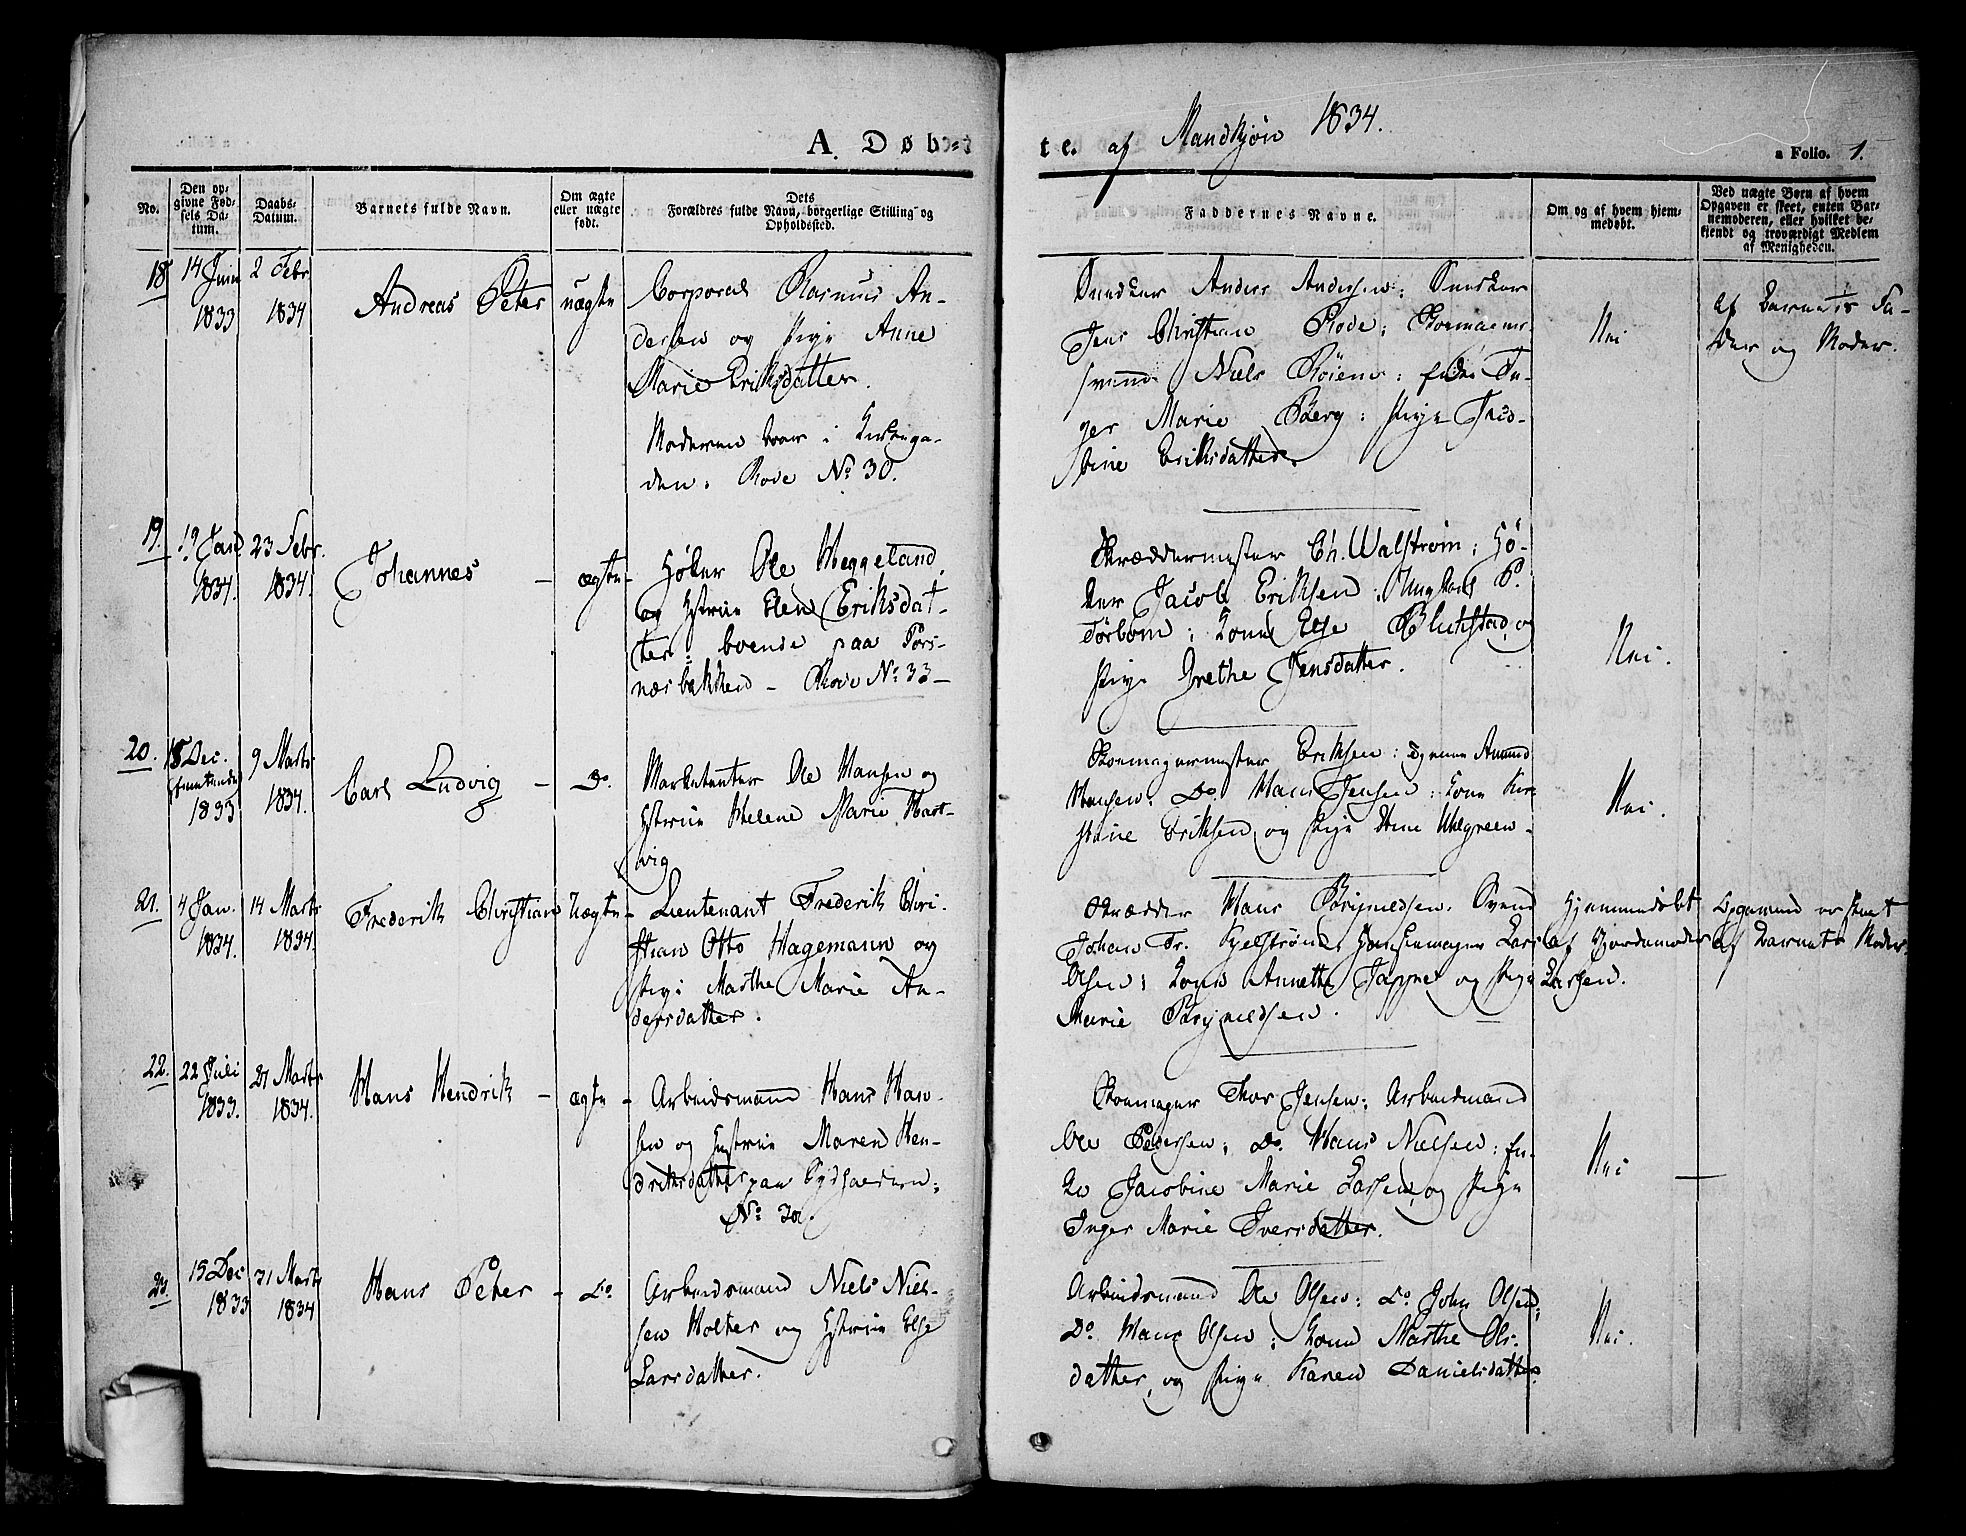 A. Døb=
te. af Mandkjøn 1834.
a Folio. 1.
No.
Den op=
givne Fød=
sels Da=
tum.
Daabs=
Datum.
Barnets fulde Navn.
Om ægte
eller uægte
født.
Dets
Forældres fulde Navn, borgerlige Stilling og
Opholdssted.
Faddernes Navne.
Om og af hvem hjem=
medøbt.
Ved uægte Børn af hvem
Opgaven er skeet, enten Bar=
nemoderen, eller hvilket be=
kjendt og troværdigt Medlem
af Menigheden.
18
14 Juni
1833
2 Febr
1834
Andreas Peter
uægte
Corporal Rasmus An-
dersen og Pige Anne
Marie Eriksdatter.
Moderen boer i
den. Rode No 30.
Snedker Anders Andersen; Snedker
Jens Christian Rode; Skomager-
svend Niels ; Enke In-
ger Marie Berg; Pige Jaco-
bine Eriksdatter.
Nei
Af Barnets Fa-
der og Moder.
19.
19 Jan
1834.
23 Febr.
1834.
Johannes -
ægte -
Høker Ole Heggeland,
og Hustrue Elen Eriksdat-
ter; boende paa Pors-
næsbakken - Rode No 33 -
Skræddermester Ch. Walstrøm; Hø-
ker Jacob Eriksen; P.
Torbom; Kone Else og
Pige Grethe Jensdatter.
Nei.
20.
18 Dec.
1833
9 Marts
1834.
Carl Ludvig -
Do.
Marketenter Ole Hansen og
Hstrue Helene Marie Hart-
vig
Skomagermester Eriksen; Amund
Hansen; Do Hans Jensen; Kone Kir-
stine Eriksen og Pige Uhlgreen -
Nei.
21.
4 Jan.
1834.
14 Marts
1834.
Frederik Christian
Uægte -
Lieutenant Frederik Chri-
stian Otto Hagemann og
Pige Marthe Marie An-
dersdatter.
Skrædder Hans Brynildsen, Svend
Johan Fr. Kjelstrøm, Lars
Olsen; Kone Annette og Pige
Marie Brynildsen.
Hjemmedøbt
af Gjordemoder
Larsen.
Opgaven er skeet
af Barnets Moder.
22.
22 Juli
1833.
21 Marts
1834.
Hans Hendrik -
ægte -
Arbeidsmand Hans Han-
sen og Hustrue Maren Hen-
driksdatter paa
No 30.
Skomager Thor Jensen; Arbeidsmand
Ole Pedersen; Do Hans Nielsen; En-
ke Jacobine Marie Larsen, og Pige
Inger Marie Iversdatter.
Nei
23.
15 Dec
1833
31 Marts
1834
Hans Peter -
Do.
Arbeidsmand Niels Niel-
sen Holter og Hstrue Else
Larsdatter.
Arbeidsmand Ole Olsen; Do John Olsen;
Do Hans Olsen; Kone Marthe Ols-
datter, og Pige Karen Danielsdatter
Nei.